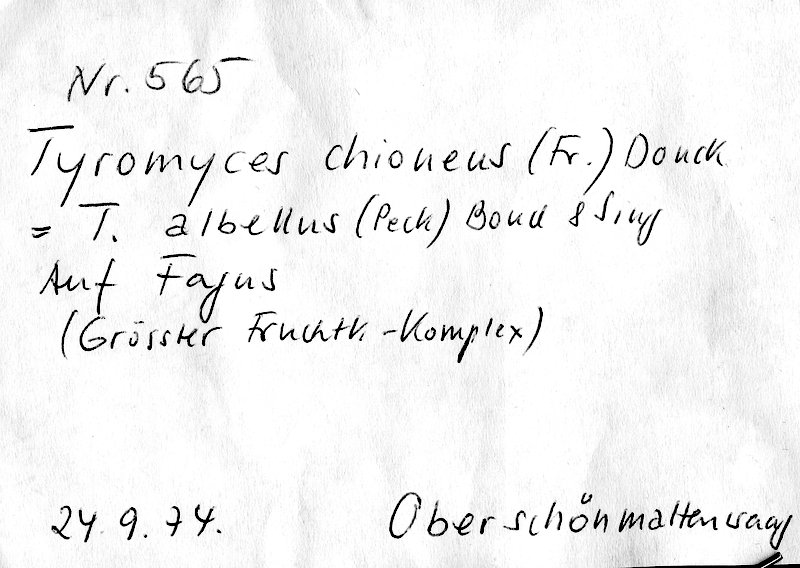 Nr. 565
Tyromyces chioneus (Fr.) Donck
= T. albellus (Peck) Bond & Sing
Auf Fagus
(Grösster Fruchtk.-Komplex)
24.9.74. Oberschönmattenwaag